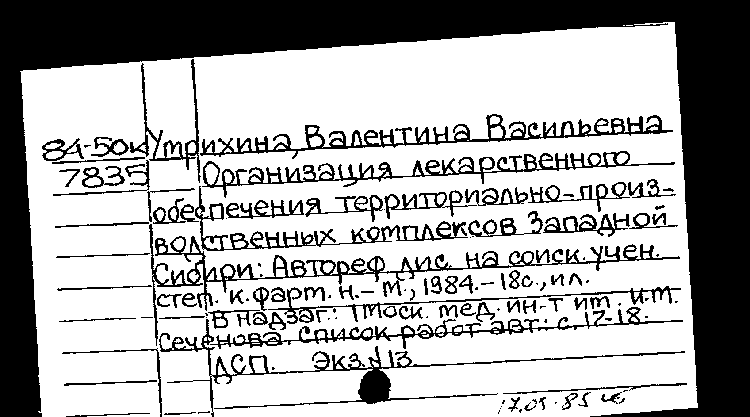 84-50к Утрихина, Валентина Васильевна
7835 Организация лекарственного
обеспечения территориально-произ-
водственных комплексов Западной
Сибири: Автореф. дис. на соиск. учен.
степ. к. фарм. н. - М., 1984. - 18с., ил.
В надзаг.: 1 Моск. мед. ин-т им. И.М.
Сеченова. Список работ авт.: с. 17-18.
ДСП. Экз. №13
17.05.85